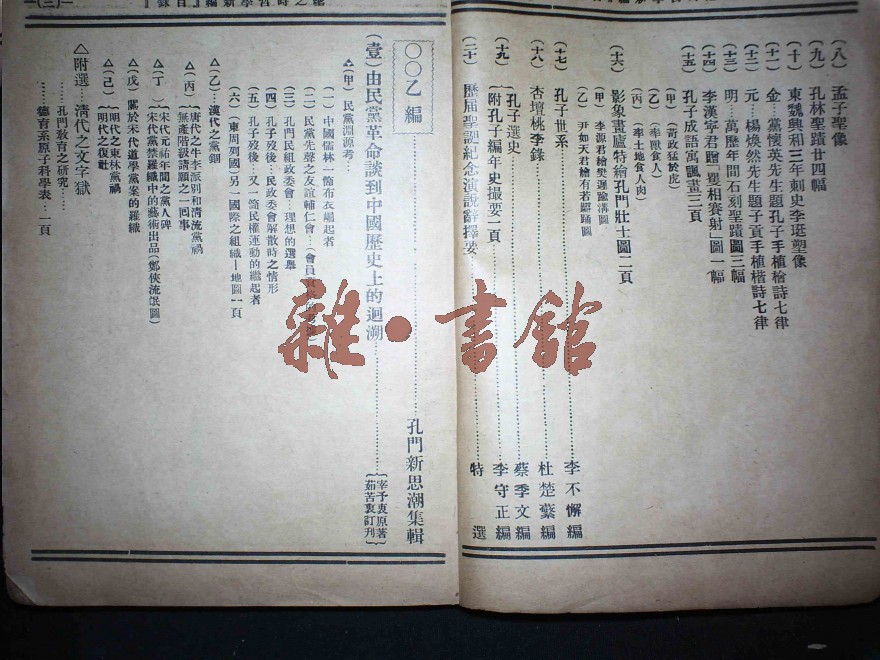 (八) 孟子聖像
(九) 孔林聖蹟廿四幅
(十) 東魏興和三年刺史李珽塑像
(十一) 金…黨懷英先生題孔子手植檜詩七律
(十二) 元…楊煥然先生題子貢手植楷詩七律
(十三) 明…萬歷年間石刻聖蹟圖三幅
(十四) 李漢寧君贈「矍相賽射」圖一幅
(十五) 孔子成語寓諷畫三頁
(甲)(苛政猛於虎)
(乙)(率獸食人)
(丙)(率土地食人肉)
(十六) 影象畫廬特繪孔門壯士圖二頁
(甲) 李源君繪樊遲踰溝圖
(乙) 尹如天君繪有若踊圖
(十七) 孔子世系………李不懈編
(十八) 杏壇桃李錄………杜楚蘩編
(十九) 孔子選史………蔡季文編
附孔子編年史撮要一頁………李守正編
(二十) 歷屆聖誕紀念演說辭擇要………特選
〇〇乙編………孔門新思潮集輯
(壹) 由民黨革命談到中國歷史上的迴溯………宰予衷原著
茹苦衷訂刊
△(甲) 民黨淵源考…
(一) 中國儒林一箇布衣崛起者
(二) 民黨先聲之友誼輔仁會…(會員
(三) 孔門民組政委會…理想的選舉
(四) 孔子歿後…民政委會解散時之情形
(五) 孔子歿後…又一箇民權運動的繼起者
(六)(東周列國)另一國際之組織—地圖一頁
△(乙)…漢代之黨錮
△(丙) 唐代之牛李派別和清流黨禍
無產階級請願之一回事
△(丁) 宋代元祐年間之黨人碑
宋代黨禁羅織中的藝術出品(鄭俠流氓圖)
△(戊) 關於宋代道學黨案的羅織
△(己) 明代之東林黨禍
明代之復社
△附選…清代之文字獄
…孔門教育之研究……
……德育系原子科學表…一頁
—(三)—
雜·書館